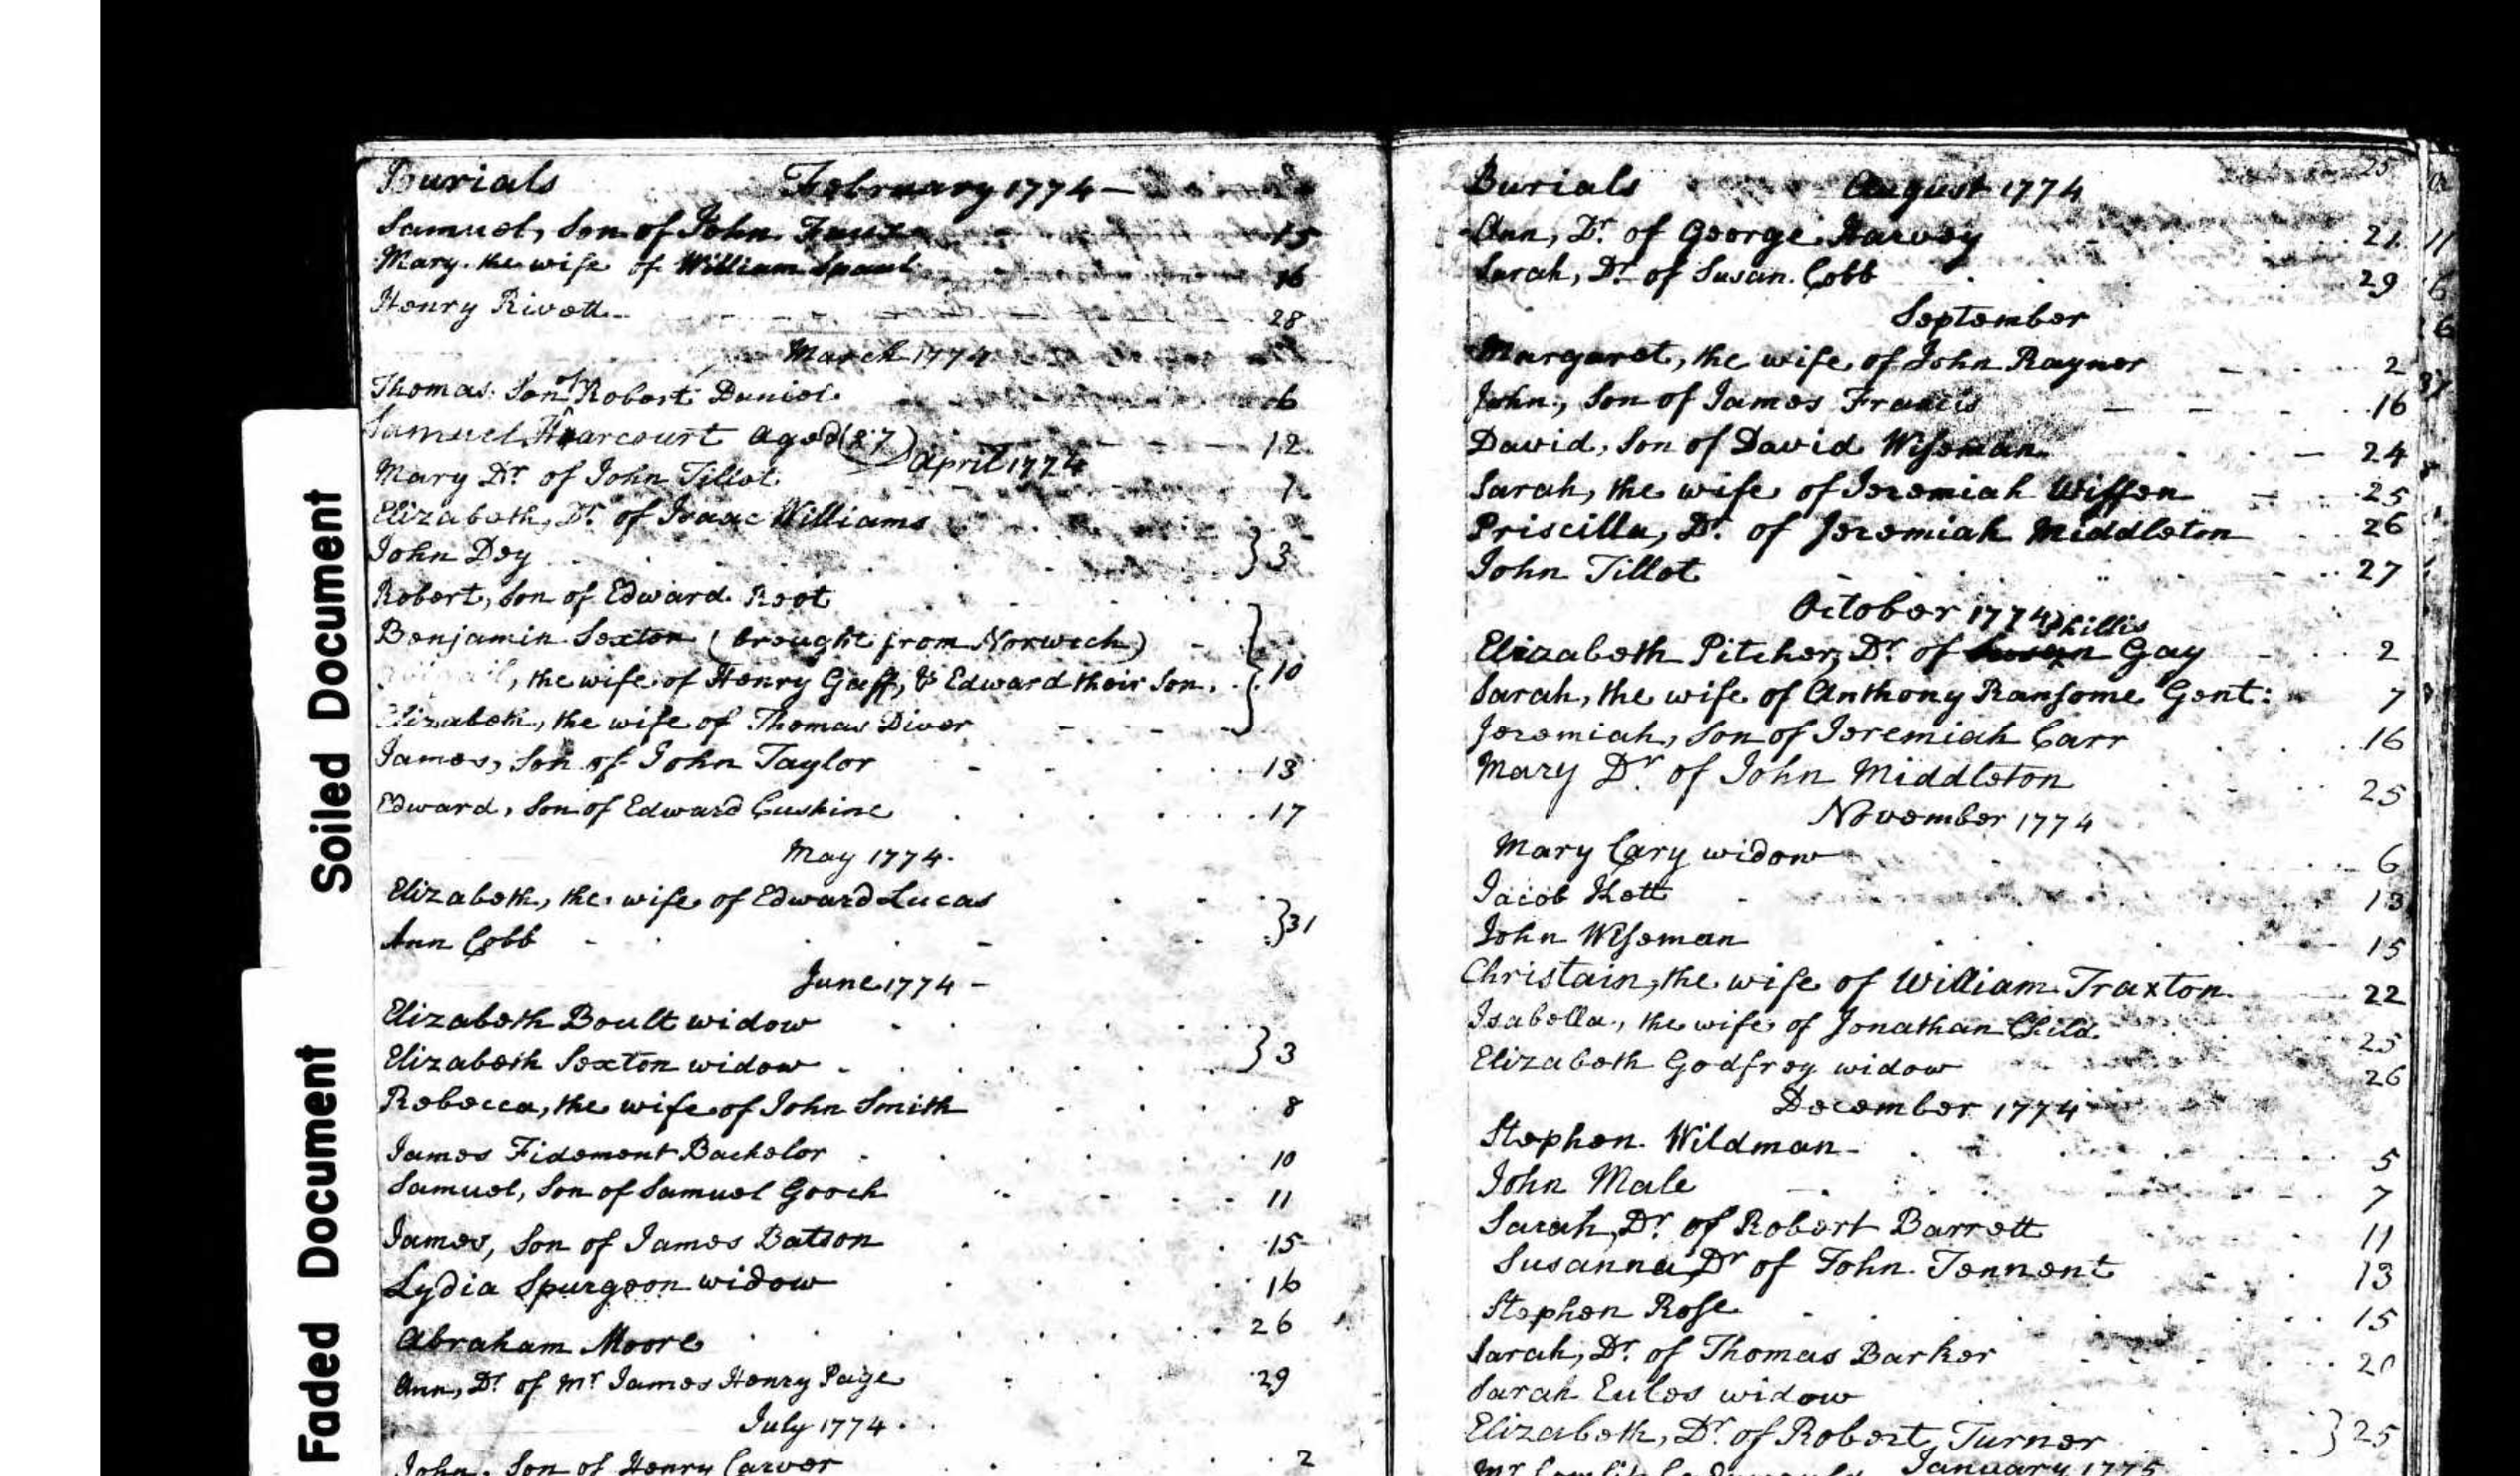 Soiled Document
Faded Document
Burials February 1774 —
Samuel, Son of John 15
Mary the wife of William Spaul 16
Henry Rivett 28
March 1774
Thomas Son of Robert Daniel 6
Samuel Harcourt aged (87) 12
April 1774
Mary Dr. of John Tillot 1
Elizabeth, Dr. of Isaac Williams
John Dey } 3
Robert, Son of Edward Root
Benjamin Sexton (brought from Norwich)
Abigail, the wife of Henry Gaff, & Edward their Son. } 10
Elizabeth, the wife of Thomas Diver
James, Son of John Taylor 13
Edward, Son of Edward Cushine 17
May 1774.
Elizabeth, the wife of Edward Lucas
Ann Cobb } 31
June 1774 -
Elizabeth Boult widow
Elizabeth Sexton widow } 3
Rebecca, the wife of John Smith 8
James Fidement Bachelor 10
Samuel, Son of Samuel Gooch 11
James, Son of James Batson 15
Lydia Spurgeon widow 16
Abraham Moore 26
Ann, Dr. of Mr James Henry Page 29
July 1774.
John, Son of Henry Carver 2
25
Burials August 1774
Ann, Dr. of George Harvey 21
Sarah, Dr. of Susan Cobb 29
September
Margaret, the wife of John Rayner 2
John, Son of James Francis 16
David, Son of David Wiseman 24
Sarah, the wife of Jeremiah Wiffen 25
Priscilla, Dr. of Jeremiah Middleton 26
John Tillot 27
October 1774
Phillis
Elizabeth Pitcher, Dr. of Susan Gay 2
Sarah, the wife of Anthony Ransome Gent: 7
Jeremiah, Son of Jeremiah Carr 16
Mary Dr of John Middleton 25
November 1774
Mary Cary widow 6
Jacob Kett 13
John Wiseman 15
Christain, the wife of William Traxton 22
Isabella, the wife of Jonathan Child 25
Elizabeth Godfrey widow 26
December 1774
Stephen Wildman 5
John Male 7
Sarah, Dr. of Robert Barrett 11
Susanna, Dr of John Tennent 13
Stephen Rose 15
Sarah, Dr. of Thomas Barker 20
Sarah Eules widow
Elizabeth, Dr. of Robert Turner } 25
January 1775